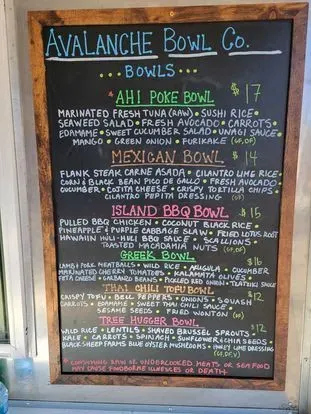 AVALANCHE BOWL CO.
BOWLS
*AHI POKE BOWL $17
MARINATED FRESH TUNA (RAW) • SUSHI RICE •
SEAWEED SALAD • FRESH AVOCADO • CARROTS •
EDAMAME • SWEET CUCUMBER SALAD • UNAGI SAUCE
MANGO • GREEN ONION • FURIKAKE (GF, DF)
MEXICAN BOWL $14
FLANK STEAK CARNE ASADA • CILANTRO LIME RICE
CORN & BLACK BEAN PICO DE GALLO • FRESH AVOCADO
CUCUMBER • COTITA CHEESE • CRISPY TORTILLA CHIPS
CILANTRO PEPITA DRESSING
ISLAND BBQ BOWL $15
PULLED BBQ CHICKEN • COCONUT BLACK RICE
PINEAPPLE & PURPLE CABBAGE SLAW • FRIED LOTUS ROOT
HAWAIIN HULI-HULI BBQ SAUCE • SCALLIONS •
TOASTED MACADAMIA NUTS (GF, DF)
GREEK BOWL $16
LAMB & PORK MEATBALLS • WILD RICE • ARUGULA • CUCUMBER
MARINATED CHERRY TOMATOES • KALAMATA OLIVES •
FETA CHEESE • GARBANZO BEANS • PICKLED RED ONION • TZATZIKI SAUCE
THAI CHILI TOFU BOWL $12
CRISPY TOFU • BELL PEPPERS • ONIONS • SQUASH
CARROTS • EDAMAME • SWEET THAI CHILI SAUCE
SESAME SEEDS • FRIED WONTON
TREE HUGGER BOWL $12
WILD RICE • LENTILS • SHAVED BRUSSEL SPROUTS
KALE • CARROTS • SPINACH • SUNFLOWER & CHIA SEEDS
BLACK SHEEP FARMS BLUE OYSTER MUSHROOMS • HONEY LIME DRESSING
(GF, DF, V)
* CONSUMING RAW OR UNDERCOOKED MEATS OR SEAFOOD
MAY CAUSE FOODBORNE ILLNESSES OR DEATH.